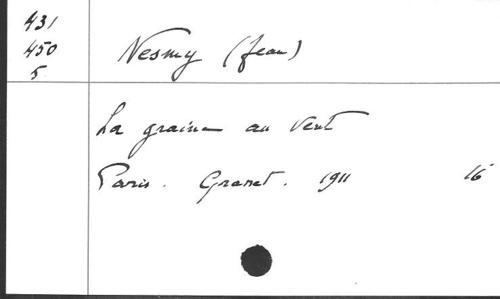 431
450
5
Nesmy (Jean)
La graine au vent
Paris. Grasset. 1911 16°